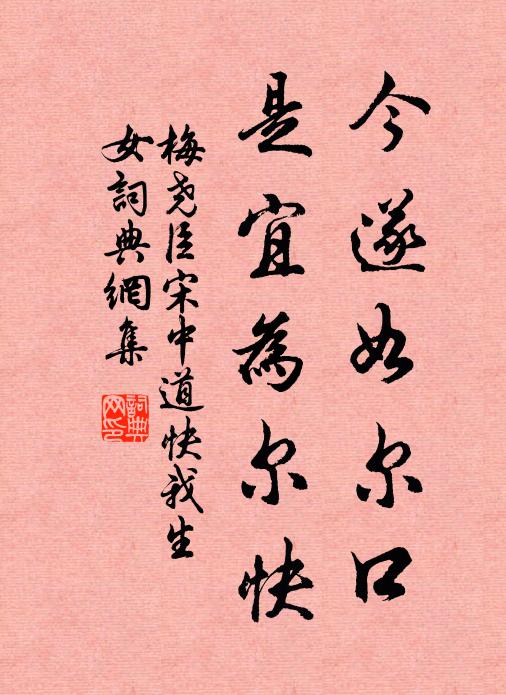 今遂如尔口
是宜為尔快
梅尧臣宋中道快我生
女詞典網集
詞典网印